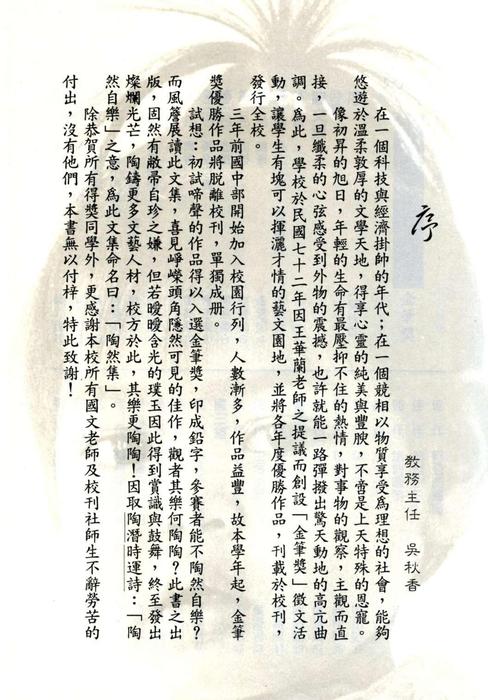 序
教務主任　吳秋香
在一個科技與經濟掛帥的年代；在一個競相以物質享受為理想的社會，能夠
悠遊於溫柔敦厚的文學天地，得享心靈的純美與豐腴，不啻是上天特殊的恩寵。
像初昇的旭日，年輕的生命有最壓抑不住的熱情，對事物的觀察，主觀而直
接，一旦纖柔的心弦感受到外物的震撼，也許就能一路彈撥出驚天動地的高亢曲
調。為此，學校於民國七十二年因王華蘭老師之提議而創設「金筆獎」徵文活
動，讓學生有塊可以揮灑才情的藝文園地，並將各年度優勝作品，刊載於校刊，
發行全校。
三年前國中部開始加入校園行列，人數漸多，作品益豐，故本學年起，金筆
獎優勝作品將脫離校刊，單獨成冊。
試想：初試啼聲的作品得以入選金筆獎，印成鉛字，參賽者能不陶然自樂？
而風簷展讀此文集，喜見崢嶸頭角隱然可見的佳作，觀者其樂何陶陶？此書之出
版，固然有敝帚自珍之嫌，但若曖曖含光的璞玉因此得到賞識與鼓舞，終至發出
燦爛光芒，陶鑄更多文藝人材，校方於此，其樂更陶陶！因取陶潛時運詩：「陶
然自樂」之意，為此文集命名曰：「陶然集」。
除恭賀所有得獎同學外，更感謝本校所有國文老師及校刊社師生不辭勞苦的
付出，沒有他們，本書無以付梓，特此致謝！